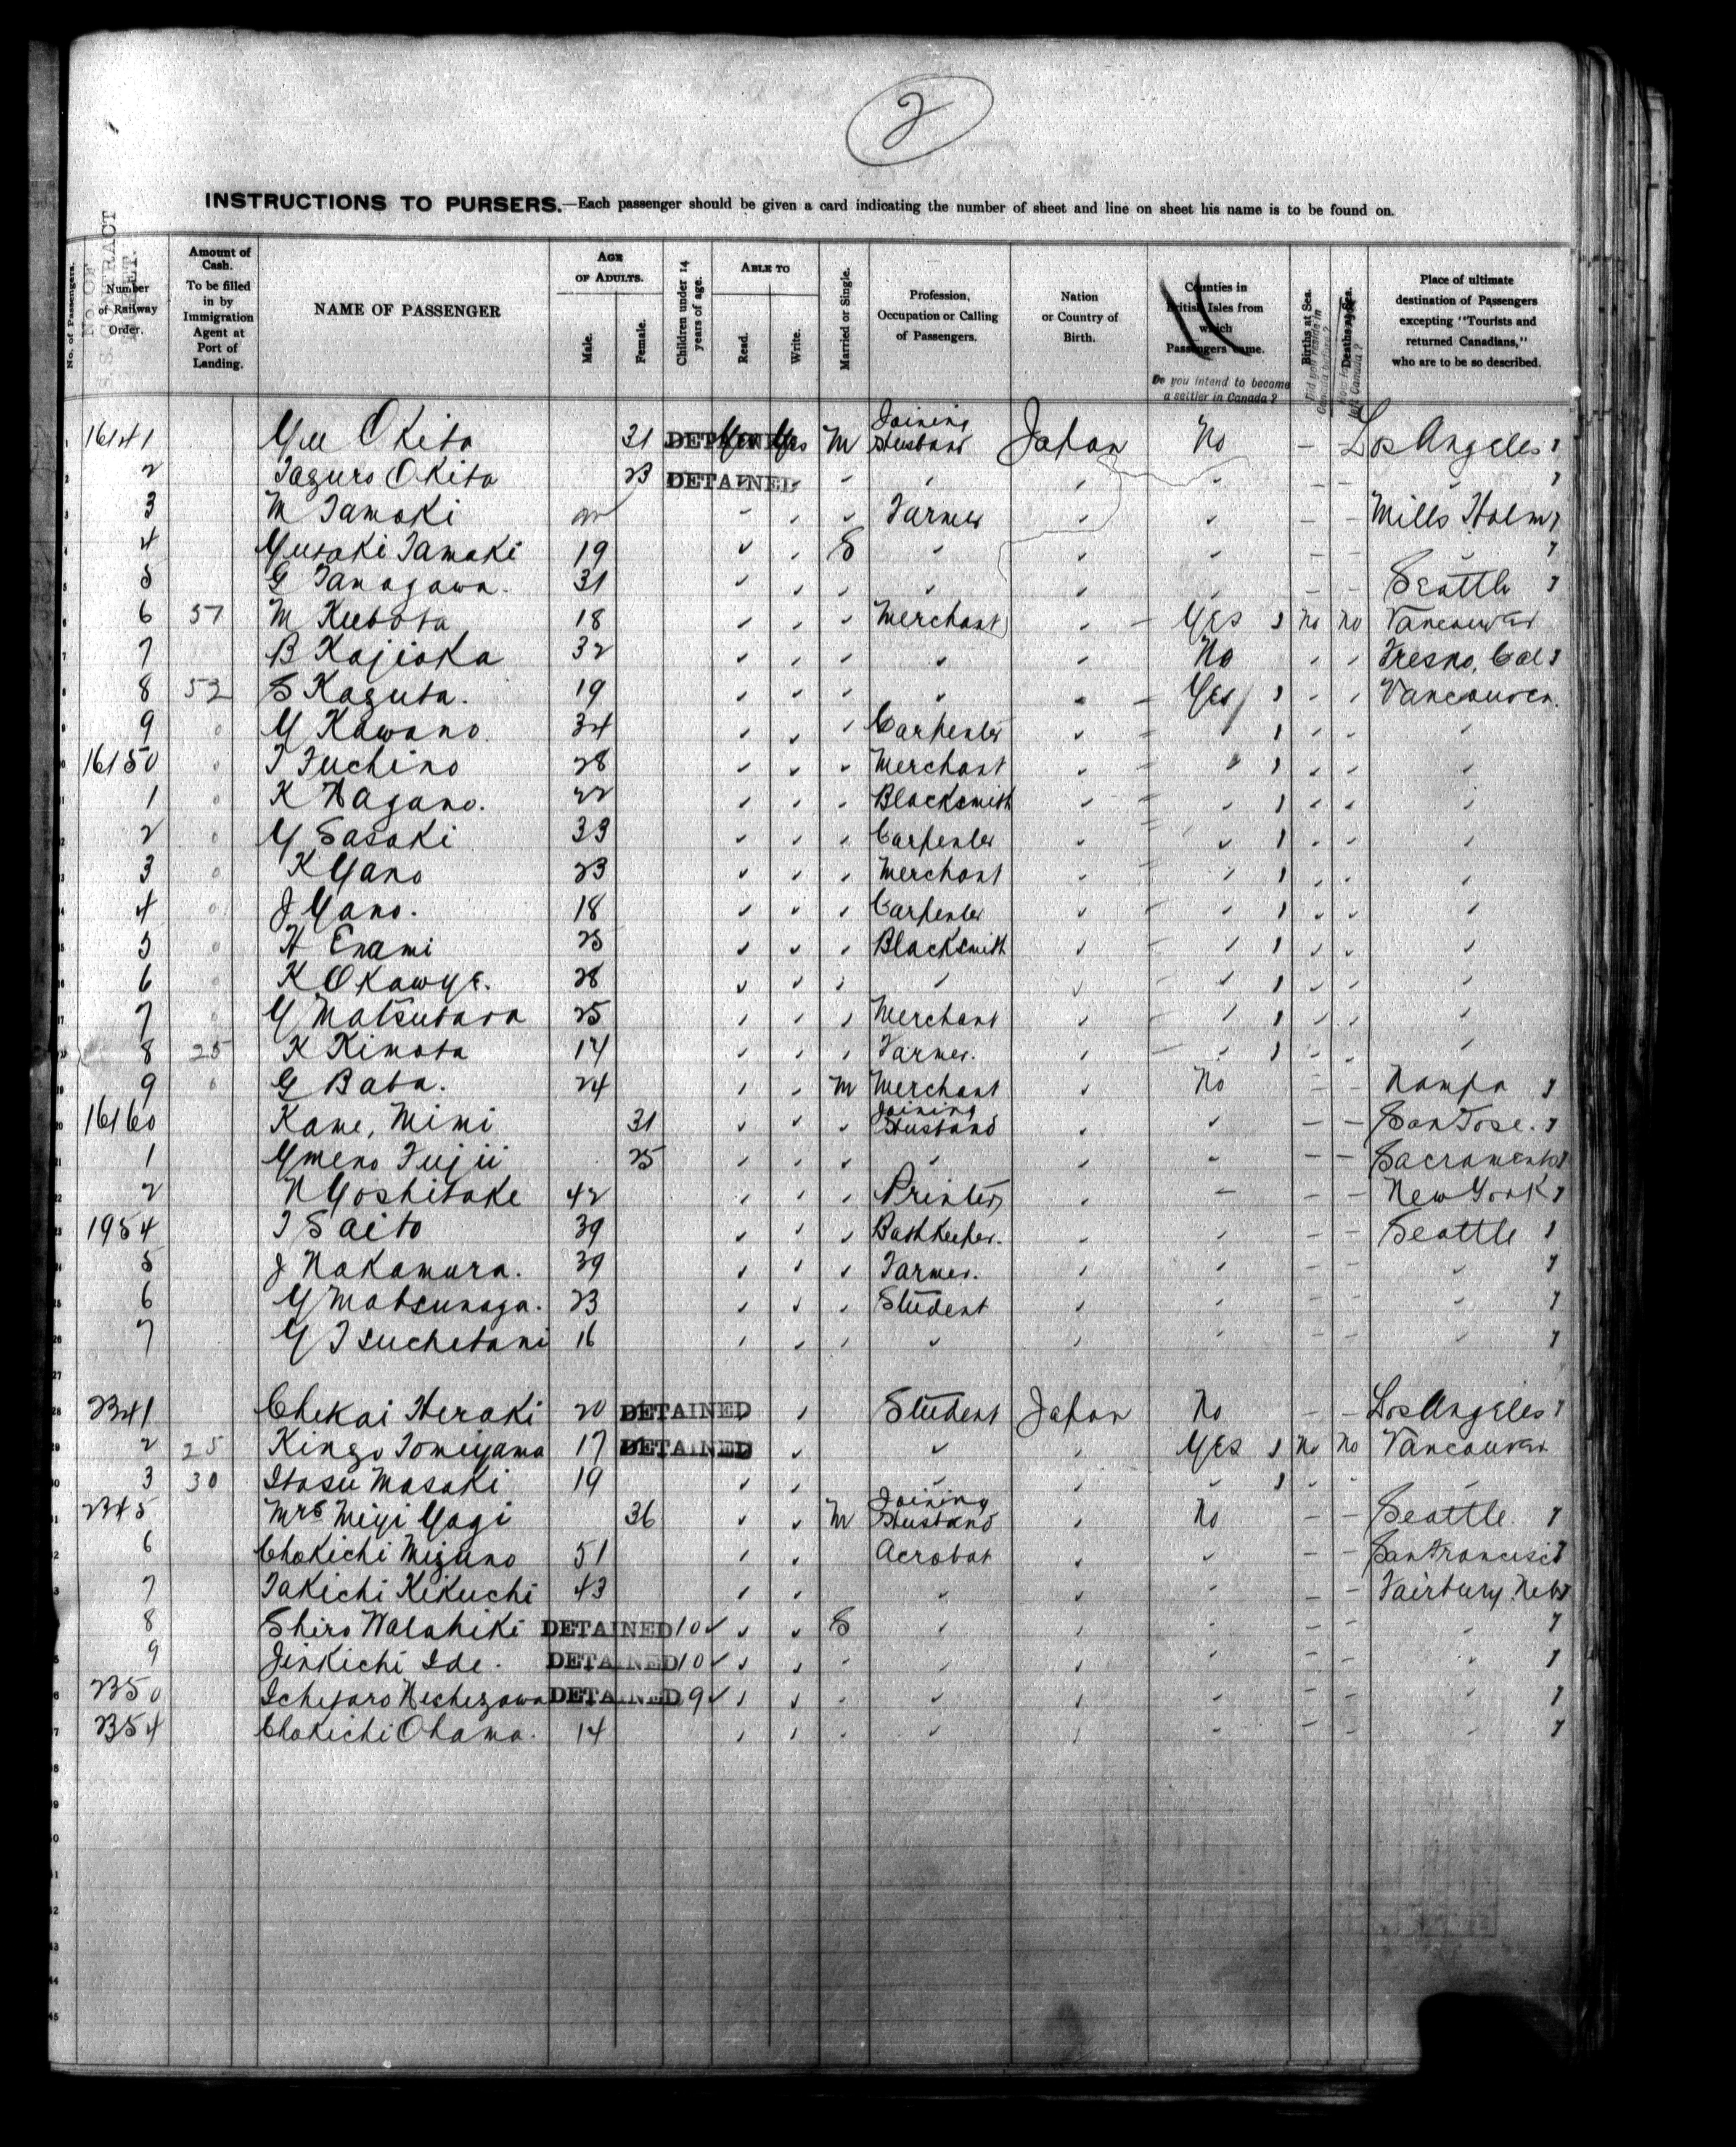 2
INSTRUCTIONS TO PURSERS.—Each passenger should be given a card indicating the number of sheet and line on sheet his name is to be found on.
No. of Passengers.
NO OF S.S. CONTRACT TICKET.
Number of Railway Order.
Amount of Cash. To be filled in by Immigration Agent at Port of Landing.
NAME OF PASSENGER
AGE OF ADULTS.
Male.
Female.
Children under 14 years of age.
ABLE TO
Read.
Write.
Married or Single.
Profession, Occupation or Calling of Passengers.
Nation or Country of Birth.
Counties in British Isles from which Passengers came.
Do you intend to become a settler in Canada?
Births at Sea.
Deaths at Sea.
Place of ultimate destination of Passengers excepting "Tourists and returned Canadians," who are to be so described.
16141 Yuu Okita 31 DETAINED Yes Yes M Joining Husband Japan No – – Los Angeles
2 Taguro Okita 23 DETAINED
3 M Tamaki Farmer Mills Holm
4 Yusaki Tamaki 19 S
5 G Tamagawa. 31 Seattle
6 57 M Kubota 18 Merchant Yes No No Vancouver
7 B Kajioka 32 No Fresno, Cal
8 52 S Kaguta. 19 Yes Vancouver.
9 Y Kawano 34 Carpenter
16150 T Fuchino 28 Merchant
1 K Nagano. 22 Blacksmith
2 Y Sasaki 33 Carpenter
3 K Yano 23 Merchant
4 J Yano. 18 Carpenter
5 H Enami 25 Blacksmith
6 K Okawye. 28
7 Y Matsubara 25 Merchant
8 25 K Kimota 14 Farmer.
9 G Baba. 24 M Merchant No Nampa
16160 Kame, Mimi 31 Joining Husband – – San Jose.
1 Ymeno Fujii 25 – – Sacramento
2 N Yoshitake 42 Printer – – New York
1954 T Saito 39 Bookkeeper. – – Seattle
5 J Nakamura. 39 Farmer.
6 Y Matsunaga. 23 Student
7 Y Tsuchetani 16
2341 Chekai Heraki 20 DETAINED Student Japan No – – Los Angeles
2 25 Kingo Tomiyama 17 DETAINED Yes No No Vancouver
3 30 Itasu Masaki 19
2345 Mrs Miyi Yagi 36 M Joining Husband No – – Seattle
6 Chokichi Mizuno 51 Acrobat – – San Francisco
7 Takichi Kikuchi 43 – – Fairbury. Neb
8 Shiro Walahiki DETAINED 10 S
9 Jinkichi Ide. DETAINED 10
2350 Ichitaro Nechezawa DETAINED 9
2354 Chokichi Ohama. 14